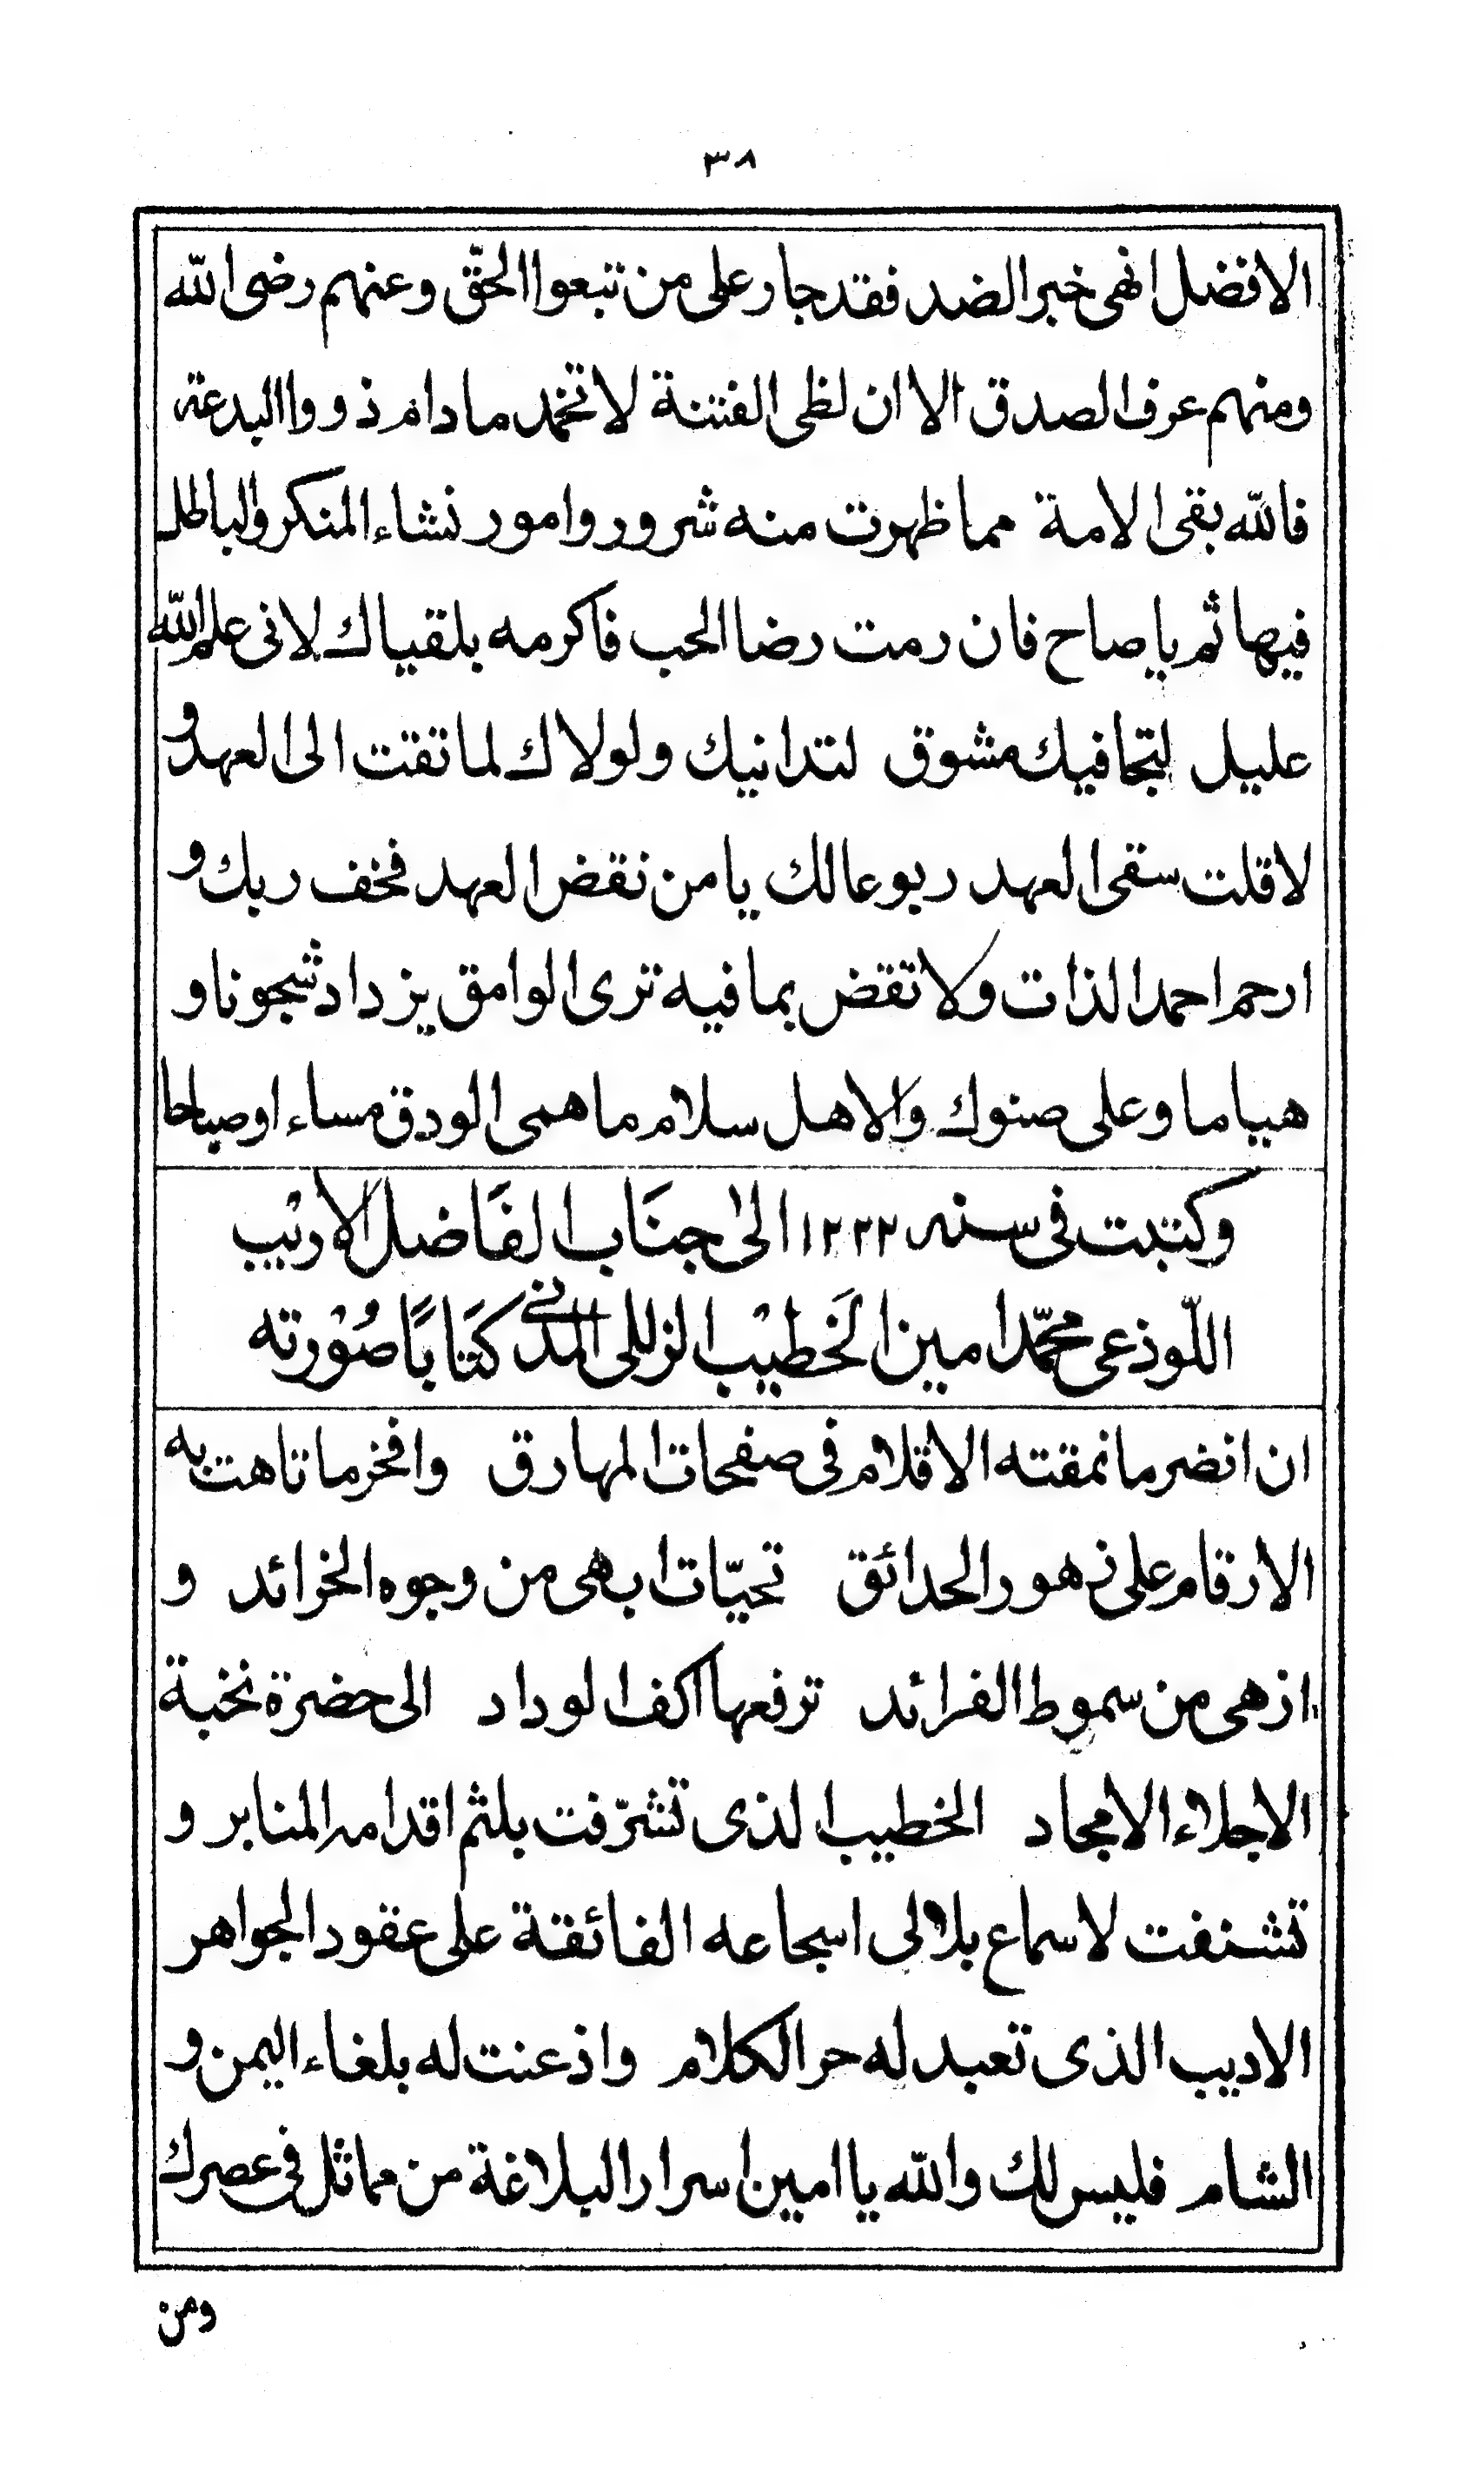 ٣٨
الافضل انهى خبر الضد فقد جار على من تبعوا الحقّ وعنهم رضى اللّه
ومنهم عرف الصدق الا ان لظى الفتنة لا تخمد ما دام ذووا البدعة
فاللّه بقى الامة مما ظهرت منه شرور وامور نشاء المنكر والباطل
فيها ثم يا صاح فان رمت رضا الحب فاكرمه بلقياك لانى علم اللّه
عليل لتجافيك مشوق لتدانيك ولولاك لما تقت الى العهد و
لا قلت سقى العهد ربوعا لك يا من نقض العهد فخف ربك و
ارحم احمد الذات ولا تقض بما فيه ترى الوامق يزداد شجونا و
هياما وعلى صنوك والاهل سلام ما همى الودق مساء او صباحا
وكتبت فى سنه ١٢٢٢ الىٰ جنَاب الفَاضل الاَديْب
اللّوذعى محمّد امين الخَطيْب الزللى المدنى كتَابًا صُوْرته
ان انضر ما نمقته الاقلام فى صفحات المهارق وافخر ما تاهت به
الارقام على زهور الحدائق تحيّات ابهى من وجوه الخرائد و
ازهى من سموط الفرائد ترفعها اكف الوداد الى حضرة نخبة
الاجلاء الامجاد الخطيب الذى تشرّفت بلثم اقدامه المنابر و
تشنفت لاسماع بلالى اسجاعه الفائقة على عقود الجواهر
الاديب الذى تعبد له حر الكلام واذعنت له بلغاء اليمن و
الشام فليس لك واللّه يا امين اسرار البلاغة من مماثل فى عصرك
ومن